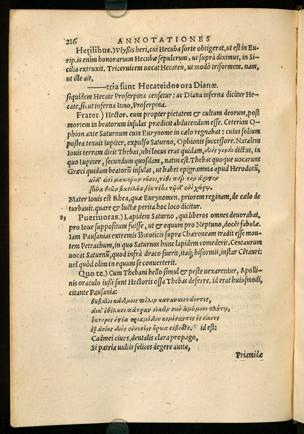 216 ANNOTATIONES
Herilibus.) Vlyssis heri, cui Hecuba sorte obtigerat, ut est in Eu-
rip. is enim honorarium Hecubæ sepulcrum, ut suprà diximus, in Si-
cilia extruxit. Triceruicem uocat Hecaten, ut modò triformem. nam,
ut ille ait,
——tria sunt Hecateidos ora Dianæ.
siquidem Hecate Proserpina censetur: ac Diana inferna dicitur Heca-
te, sicut inferna Iuno, Proserpina.
Frater.) Hector. cum propter pietatem & cultum deorum, post
mortem in beatorum insulas prædicit abducendum esse. Ceterùm O-
phion ante Saturnum cum Eurynome in cælo regnabat: cuius solium
postea tenuit iupiter, expulso Saturno, Ophionis successore. Natalem
Iouis terram dicit Thebas, ubi
quo Iupiter, secundum quosdam, natus est. Thebas quoque uocarunt
Græci quidam beatorum insulas, ut habet epigramma apud Herodotum,
Mater Iouis est Rhea, quæ Eurynomen, priorem reginam, de cælo de-
turbauit. quare & luctæ perita hoc loco dicitur.
Pueriuoras.) Lapidem Saturno, qui liberos omnes deuorabat,
pro Ioue suppositum fuisse, ut & equum pro Neptuno, docet fabula.
Iam Pausanias extremis Bœoticis supra Chæroneam tradit esse mon-
tem Petrachum, in quo Saturnus hunc lapidem comederit. Centaurum
uocat Saturnum, quòd infrà draco fuerit, siue biformis, instar Cētauri:
uel quòd olim in equum se conuerterit.
Quo te.) Cum Thebani bello simul & peste uexarentur, Apolli-
nis oraculo iussi sunt Hectoris ossa Thebas deferre. id erat huiusmodi,
citante Pausania:
id est:
Cadmei ciues, dentalis clara propago,
Si patria uultis felices degere auita,
Priamilæ